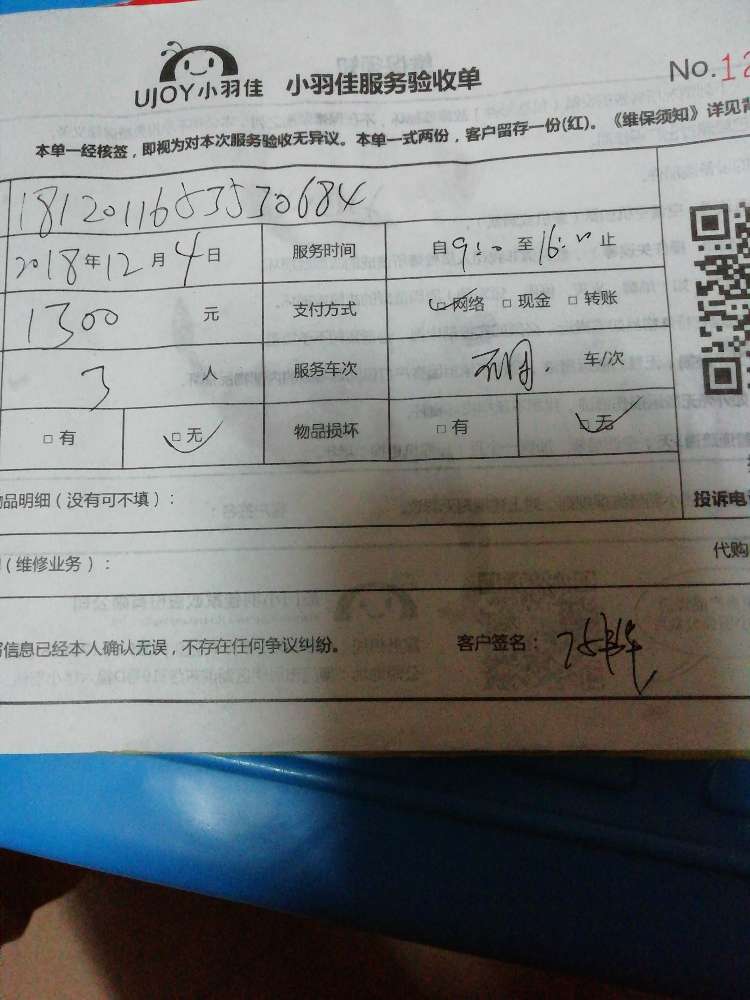 UJOY小羽佳 小羽佳服务验收单 No.12
本单一经核签，即视为对本次服务验收无异议。本单一式两份，客户留存一份(红)。《维保须知》详见背
1812011653530684
2018年12月4日 服务时间 自9:00至16:00止
1300元 支付方式 □网络 □现金 □转账
3人 服务车次 车/次
□有 □无 物品损坏 □有 □无
品明细（没有可不填）：
投诉电
（维修业务）：
代购
信息已经本人确认无误，不存在任何争议纠纷。 客户签名：